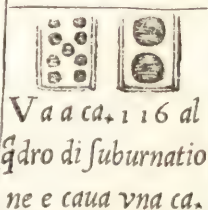 Va a ca. 116 al
q̃dro di ſuburnatio
ne e caua vna ca.